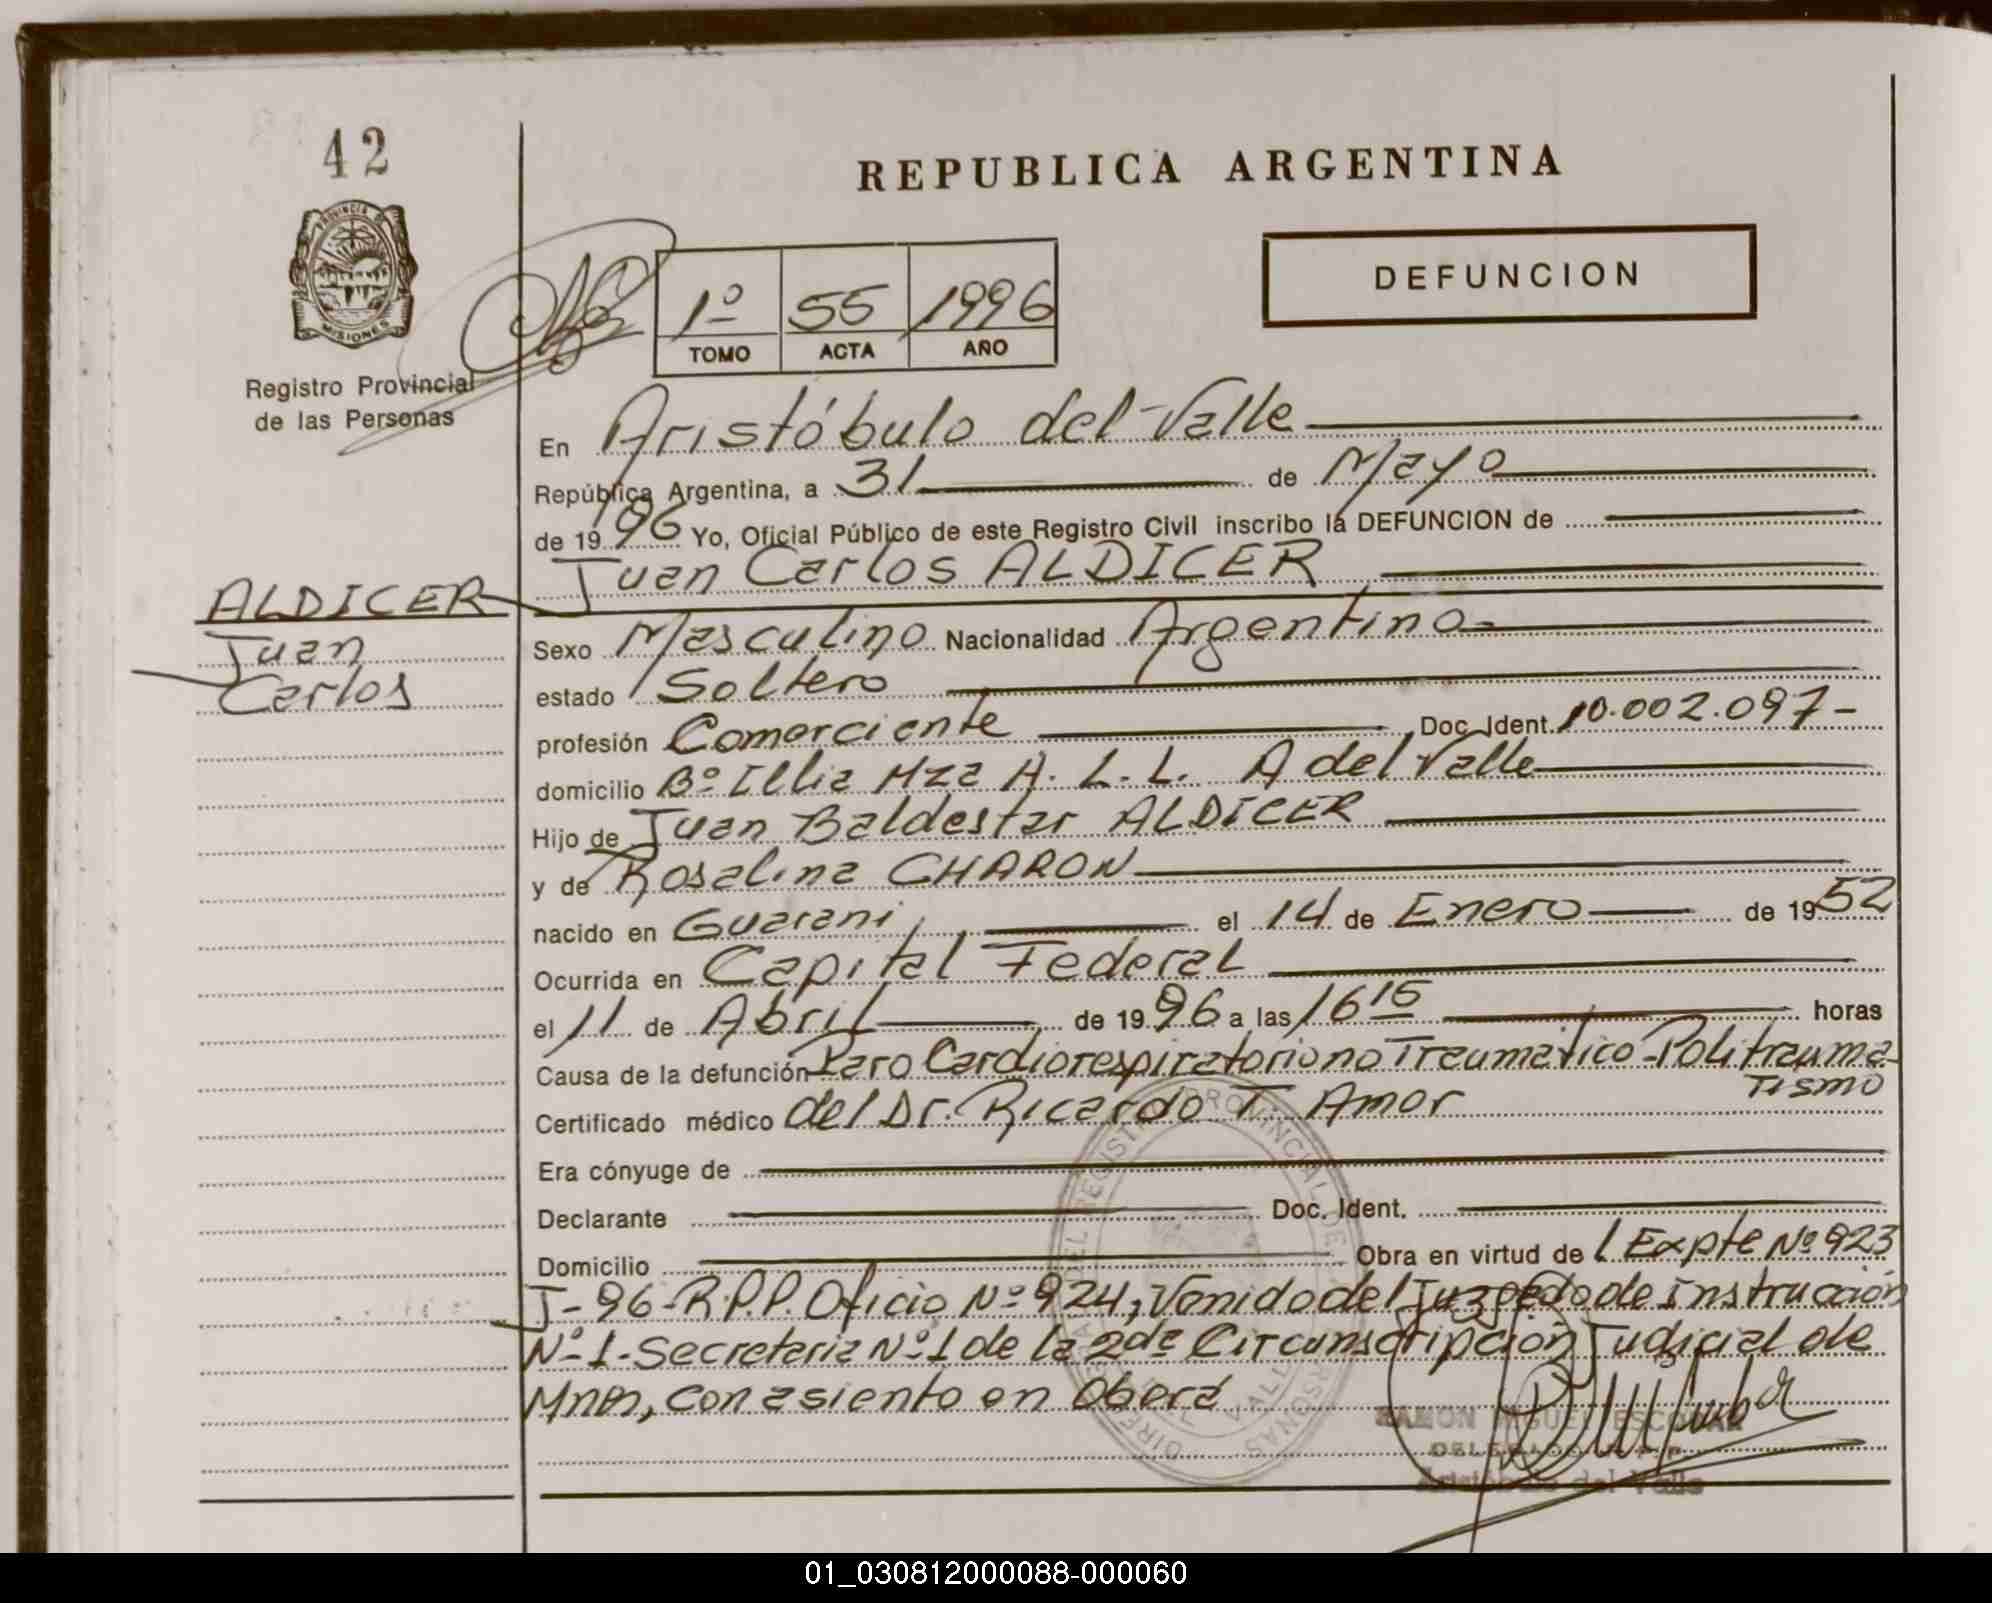 42
REPUBLICA ARGENTINA
PROVINCIA DE
MISIONES
Registro Provincial
de las Personas
1º 55 1996
TOMO ACTA AÑO
DEFUNCION
En Aristóbulo del Valle
República Argentina, a 31 de Mayo
de 19 96 Yo, Oficial Público de este Registro Civil inscribo la DEFUNCION de
Juan Carlos ALDICER
ALDICER
Juan
Carlos
Sexo Masculino Nacionalidad Argentino
estado Soltero
profesión Comerciante Doc. Ident. 10.002.097-
domicilio Bº Illia Mza H. L.L. A del Valle
Hijo de Juan Baldestar ALDICER
y de Rosalina CHARON
nacido en Guarani, el 14 de Enero de 19 52
Ocurrida en Capital Federal
el 11 de Abril de 19 96 a las 16 15 horas
Causa de la defunción Paro Cardiorespiratorio no Traumatico-Politrauma-
tismo
Certificado médico del Dr. Ricardo T. Amor
Era cónyuge de
Declarante Doc. Ident.
Domicilio Obra en virtud de l Expte Nº 923
J-96-R.P.P. Oficio Nº 924, Venido del Juzgado de instrucción
Nº 1-Secretaria Nº 1 de la 2da Circunscripción Judicial de
Mnes, con asiento en Oberá
RAMON MIGUEL ESCOBAR
Aristóbulo del Valle
01_030812000088-000060